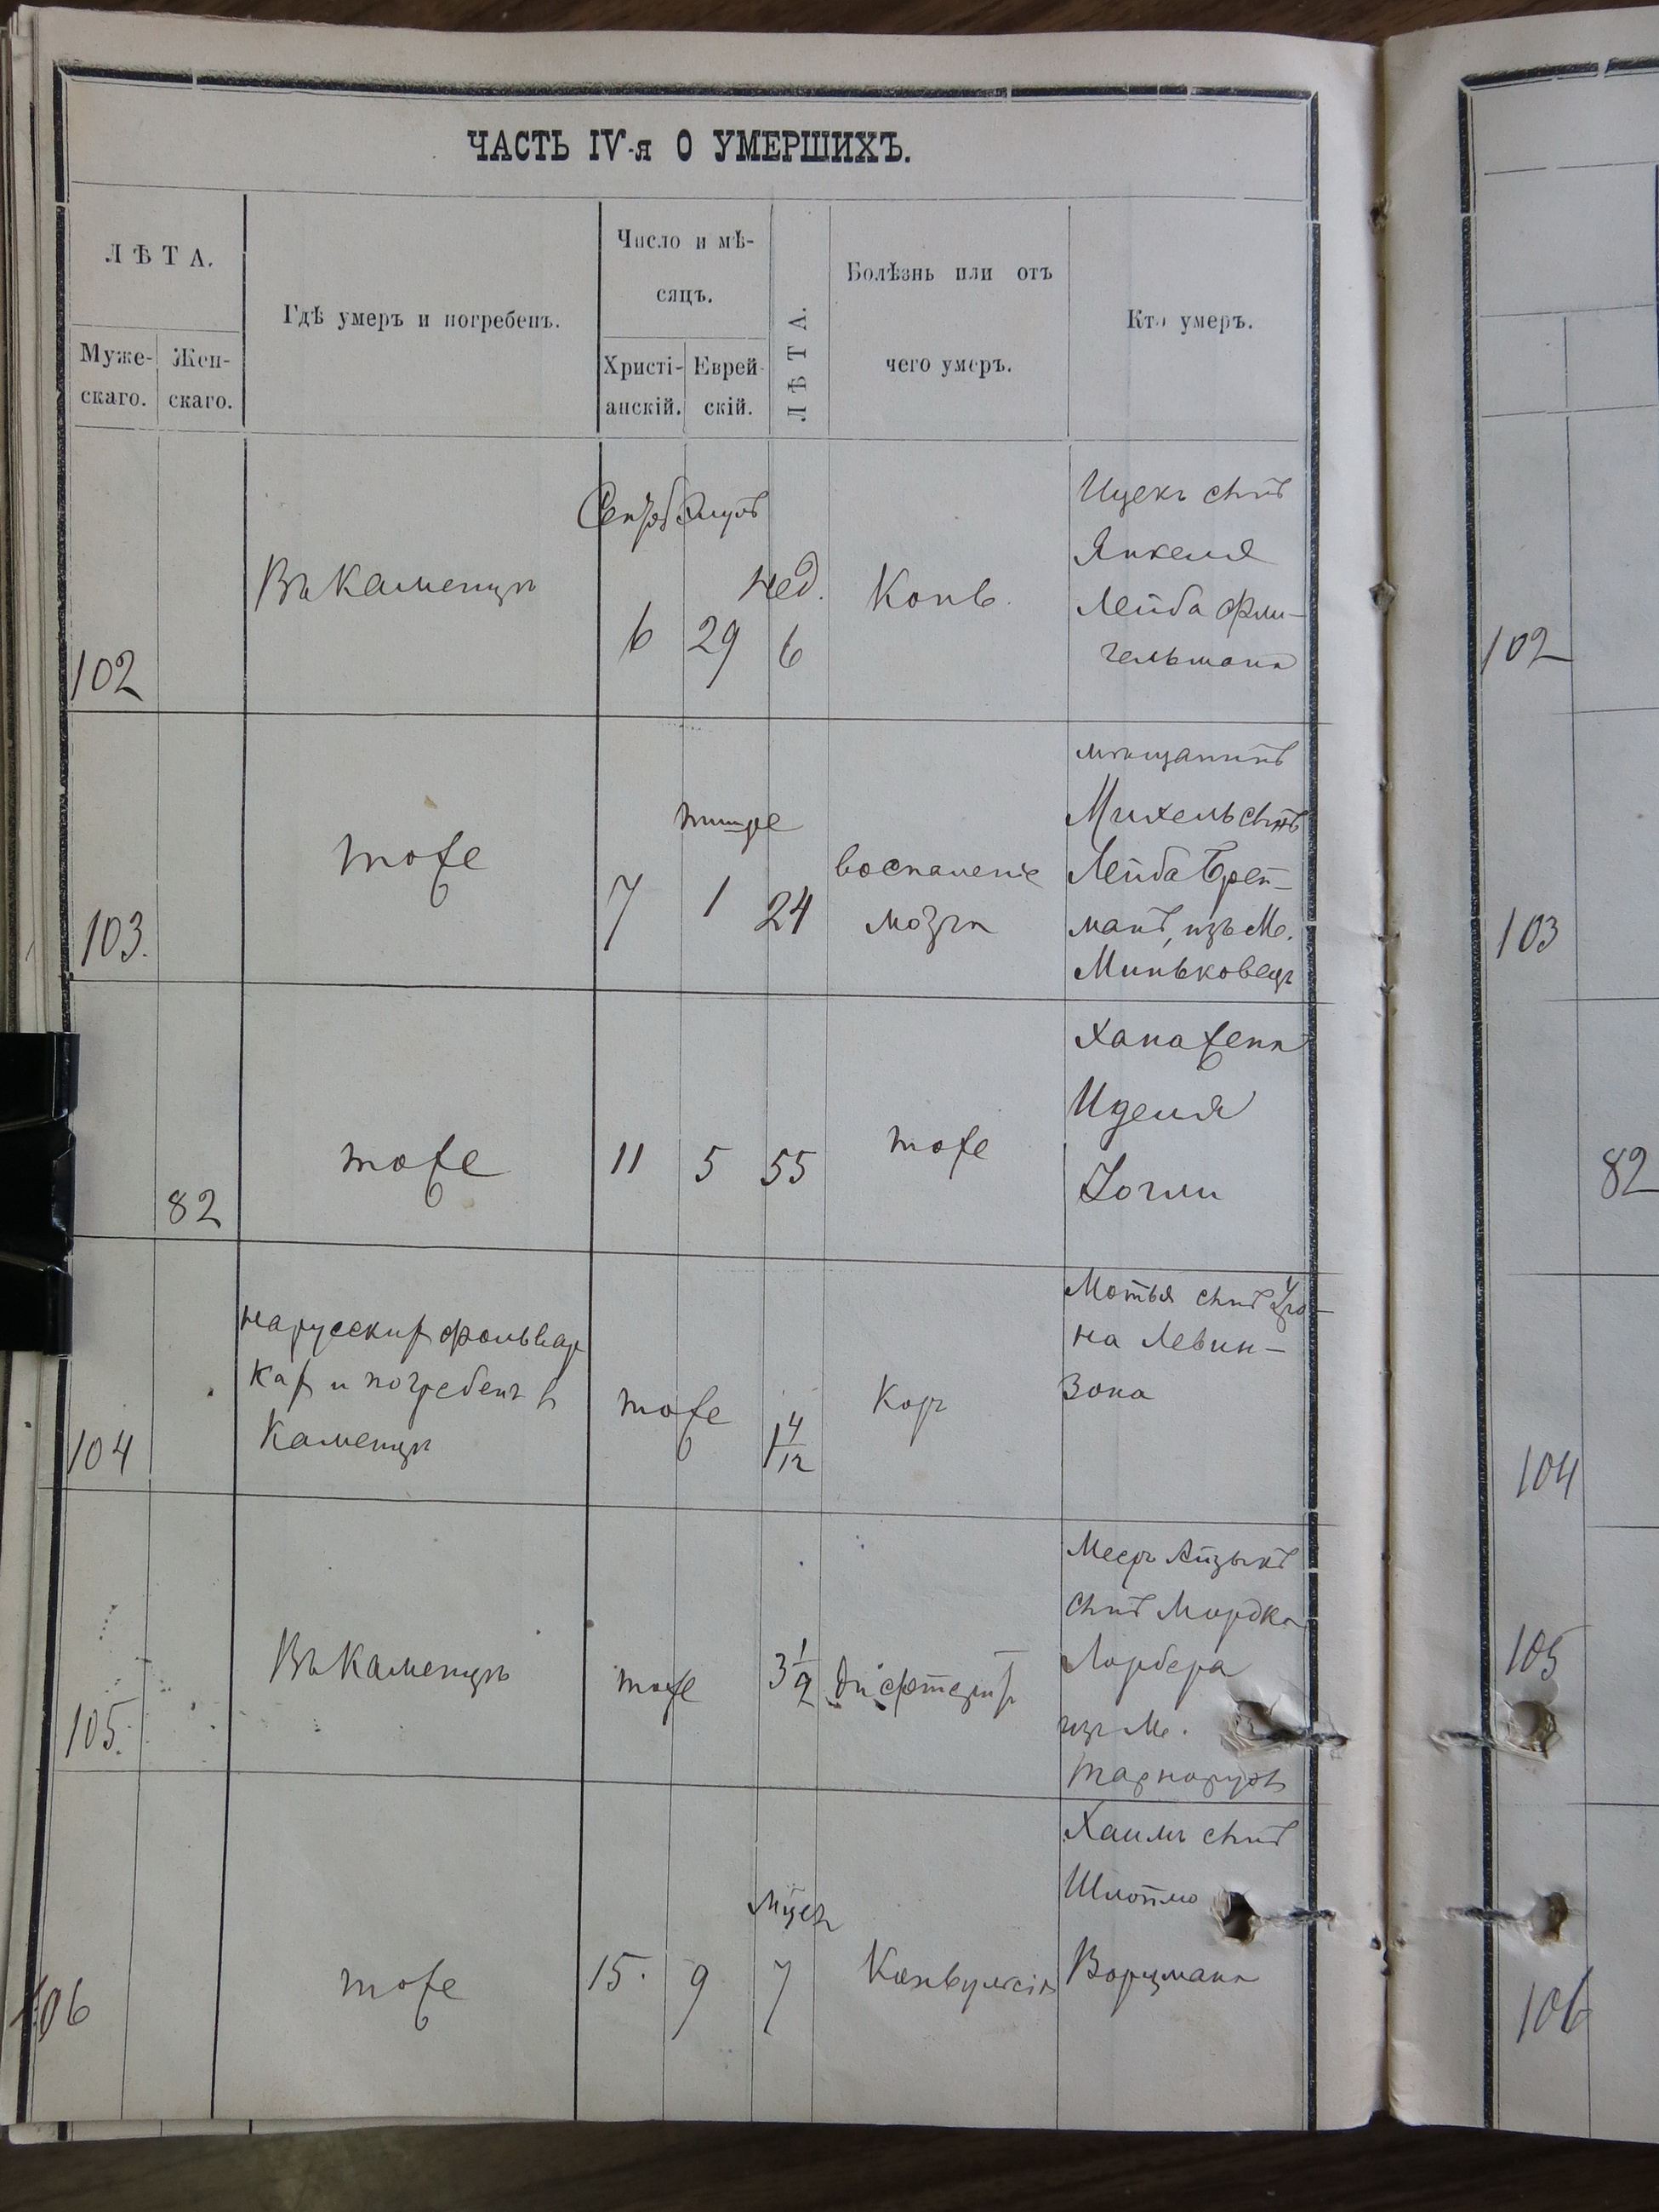 ЧАСТЬ IV-я О УМЕРШИХЪ.
ЛѢТА.
Муже-
скаго.
Жен-
скаго.
Гдѣ умеръ и погребенъ.
Число и мѣ-
сяцъ.
Христі-
анскій.
Еврей-
скій.
ЛѢТА.
Болѣзнь или отъ
чего умеръ.
Кто умеръ.
102
Въ Каменцѣ
Сентяб Элулъ
6 29
нед.
6
Конв.
Ицекъ сынъ
Янкеля
Лейба Фли-
гельмана
102
103.
тоже
тишре
7 1 24
воспаленіе
мозга
мѣщанинъ
Михель сынъ
Лейба Брей-
манъ, изъ М.
Миньковецъ
103
82
тоже
11 5 55
тоже
Хана жена
Иделя
82
104
на русских фольвар
ках и погребенъ в
Каменцѣ
тоже
1 4/12
Кор
Мотья сынъ
на Левин-
зона
104
105.
Въ Каменцѣ
тоже
3 1/2
дифтерит
Меер Айзыкъ
сынъ Мордка
Лорбера
изъ М.
Тарноруды
105
106
тоже
15. 9
Мѣсяц
7
Конвульсія
Хаимъ сынъ
Шлоймо
Ворцмана
106